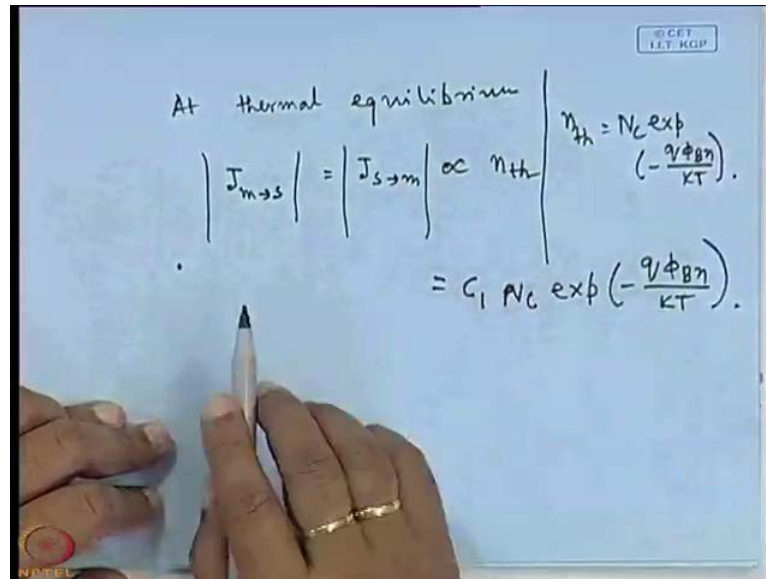 © CET
I.I.T. KGP
At thermal equilibrium
| J_{m→s} | = | J_{s→m} | ∝ n_{th} | n_{th} = N_C exp
(- qΦ_{Bn} / KT).
= C_1 N_C exp (- qΦ_{Bn} / KT).
NPTEL